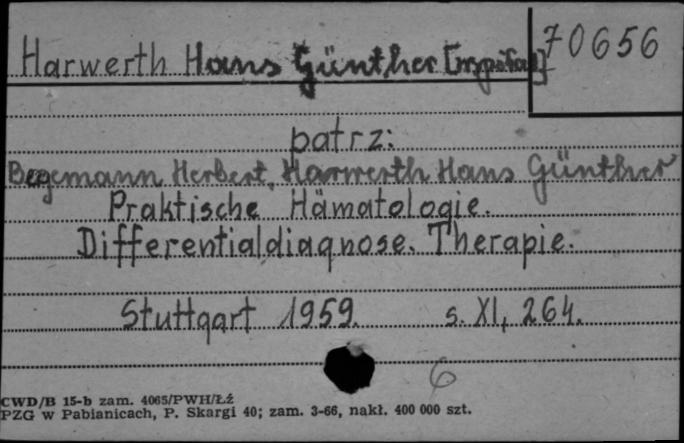 Harwerth Hans Günther [współau]
70656
patrz:
Begemann Herbert, Harwerth Hans Günther
Praktische Hämatologie.
Differentialdiagnose. Therapie.
Stuttgart 1959. s. XI, 264.
6
CWD/B 15-b zam. 4065/PWH/Łź
PZG w Pabianicach, P. Skargi 40; zam. 3-66, nakł. 400 000 szt.